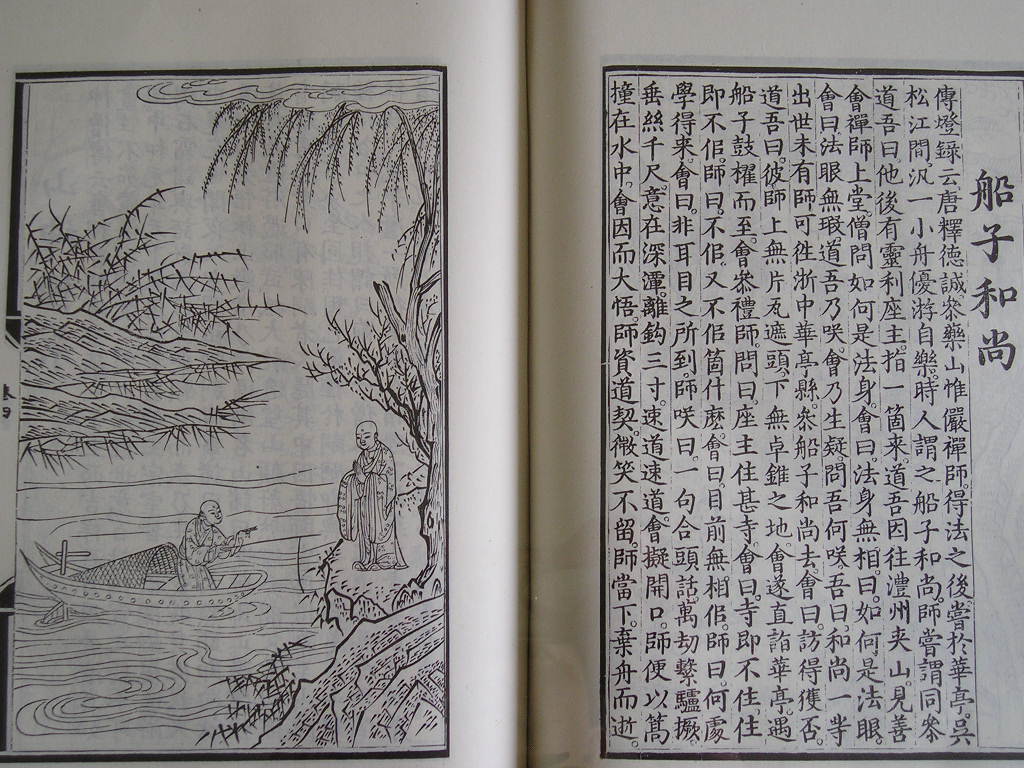 船子和尚
傳燈錄云唐釋德誠叅藥山惟儼禪師。得法之後嘗於華亭。吳
松江間。汎一小舟優游自樂。時人謂之船子和尚師嘗謂同叅
道吾曰。他後有靈利座主。指一箇来道吾因往澧州夾山。見善
會禪師上堂。僧問如何是法身。會曰。法身無相。曰。如何是法眼。
會曰。法眼無瑕道吾乃咲。會乃生疑問吾何咲。吾曰。和尚一等
出世未有師可徃浙中華亭縣。叅船子和尚去。會曰。訪得獲否。
道吾曰。彼師上無片瓦遮頭。下無卓錐之地。會遂直詣華亭。遇
船子鼓櫂而至。會叅禮師。問曰。座主住甚寺。會曰寺即不住。住
即不佀。師曰。不佀。又不佀箇什麽。會曰。目前無相佀。師曰。何處
學得来。會曰。非耳目之所到。師咲曰。一句合頭話。萬劫繫驢橛。
垂絲千尺。意在深潭。離鈎三寸。速道速道。會擬開口。師便以篙
撞在水中。會因而大悟。師資道契。微笑不留。師當下。棄舟而逝。